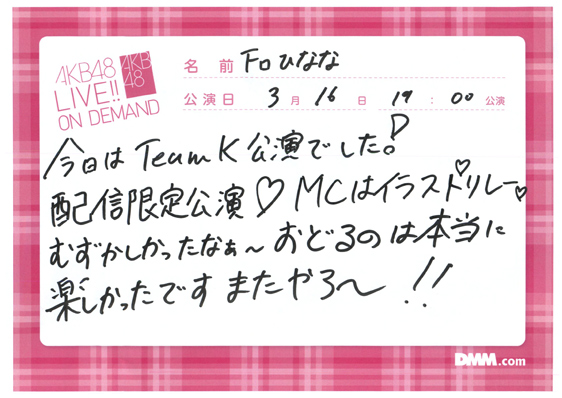 AKB48
LIVE!!
ON DEMAND
AKB
48
名前 下口ひなな
公演日 3月16日 19:00公演
今日はTeam K 公演でした!
配信限定公演♡MCはイラストリレー♡
むずかしかったなぁ〜おどるのは本当に
楽しかったですまたやろ〜!!
DMM.com